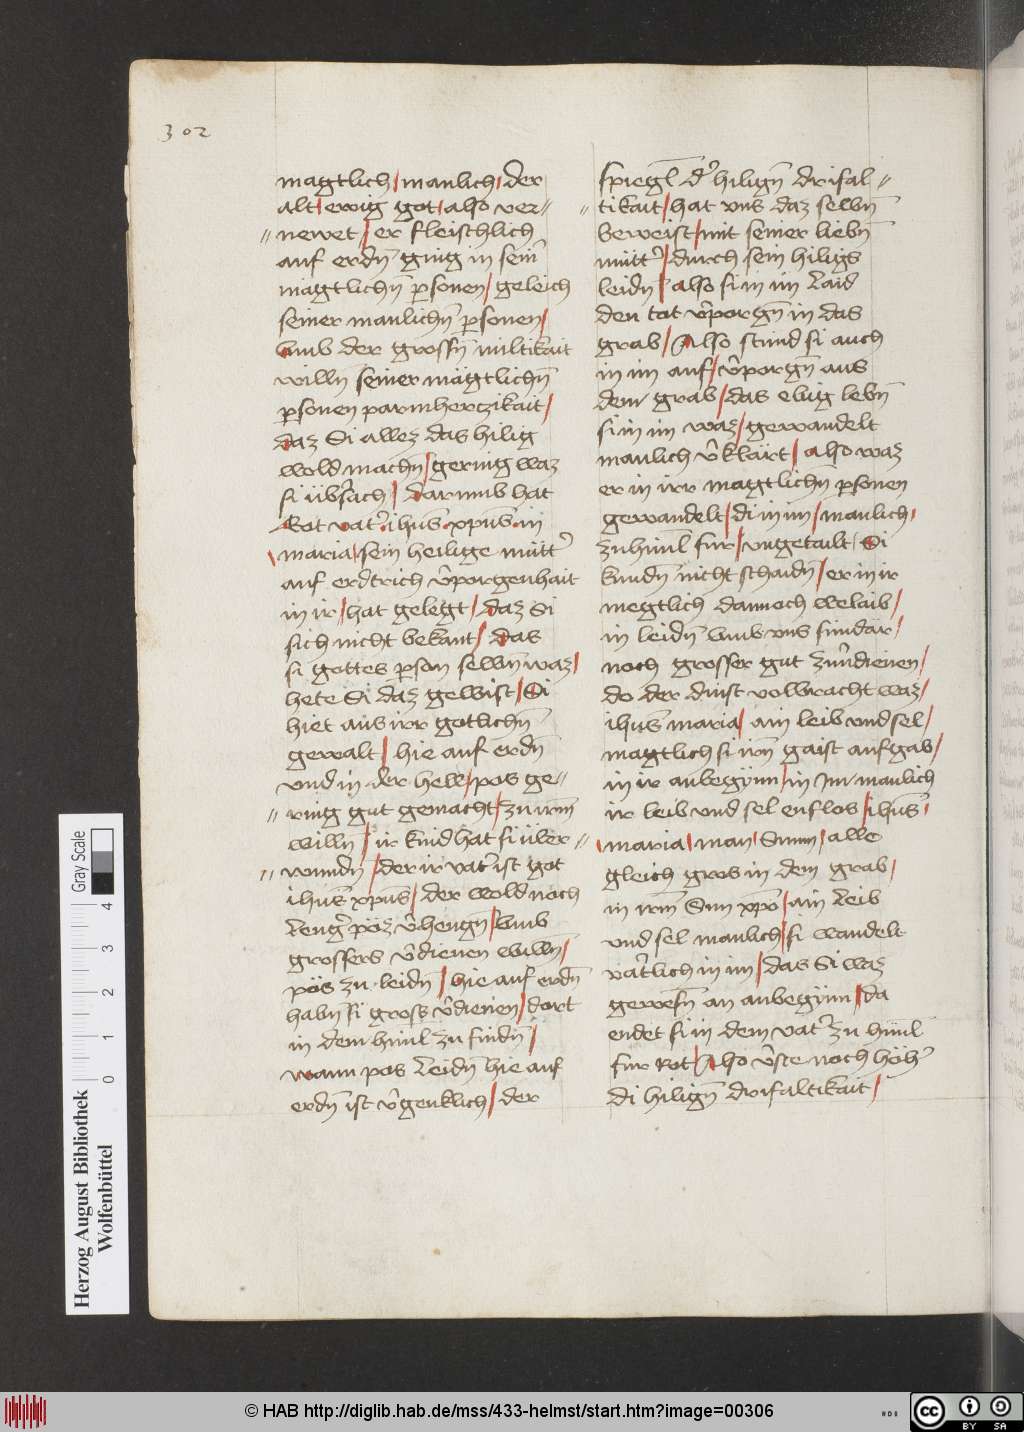 302
magtlich / manlich / der
alt / ewig got / also ver=
newet / er fleischlich
auf erdn̄ ging in sein̄
magtlichn̄ personen / geleich
seiner manlichn̄ personen /
vmb der grossn̄ miltikait
willn̄ seiner mägtlichn̄
personen parmherczikait /
daz Si allez das hilig
wold machn̄ / gering waz
si übʼsach / darumb hat
Got vatʼ ihūs xpūs in
maria / sein heilige muttʼ
auf erdtrich vʼporgenhait
in ir / hat gelegt / daz Si
sich nicht bekant / das
si gottes person selbn̄ waz /
hete Si daz gewist / Si
hiet aus irr gotlichn̄
gewalt / hie auf erdn̄
vnd in der hell / pos ge=
ring gut gemacht / zu irm̄
willn̄ / ir kind hat si über=
wundn̄ / der ir vatʼ ist got
ihūs xpūs / der wold noch
lengʼ pöz vʼhengn̄ / vmb
grossers vʼdienen willn̄ /
pös zu leidn̄ / hie auf erdn̄
habn si gross vʼdienen / dort
in dem himl zu findn̄ /
wann pos leidn̄ hie auf
erdn̄ ist vʼgenklich / der
spiegl̄ dʼ hilign̄ drifal=
tikait / hat vns daz selbn̄
beweist / mit seiner liebn̄
muttʼ / durch sein hiligs
leidn̄ / also si in im laid
den tot vʼporgn̄ in das
grab / Also stund si auch
in im auf / vʼporgn̄ aus
dem grab / das ewig lebn̄
si in im waz / gewandelt
manlich vʼklärt / also waz
er in irr magtlichn̄ personen
gewandelt / di in im / manlich /
zu himl fur / vngetailt / Si
kundn̄ nicht schaidn̄ / er in ir
megtlich dannoch welaib /
in leidn̄ vmb vns sundär /
noch grosser gut zuuʼdienen /
do der dinst volbracht waz /
ihūs maria / ain leib vnd sel /
magtlich si irn̄ gaist aufgab /
in ir anbegynn / in Im manlich
ir leib vnd sel enslos / ihūs /
maria / man / Sunn / alle
gleich gros in dem grab /
in irm̄ Sun xpō / ain leib
vnd sel manlich / si wandelt
vatʼlich in im / das Si waz
gewesn̄ an anbegynn / da
endet si in dem vatʼ zu himl
fur Got / Also vʼste noch höhʼ
di hilign̄ drifaltikait /
Herzog August Bibliothek
Wolfenbüttel
0 1 2 3 4
Gray Scale
© HAB http://diglib.hab.de/mss/433-helmst/start.htm?image=00306
cc BY SA